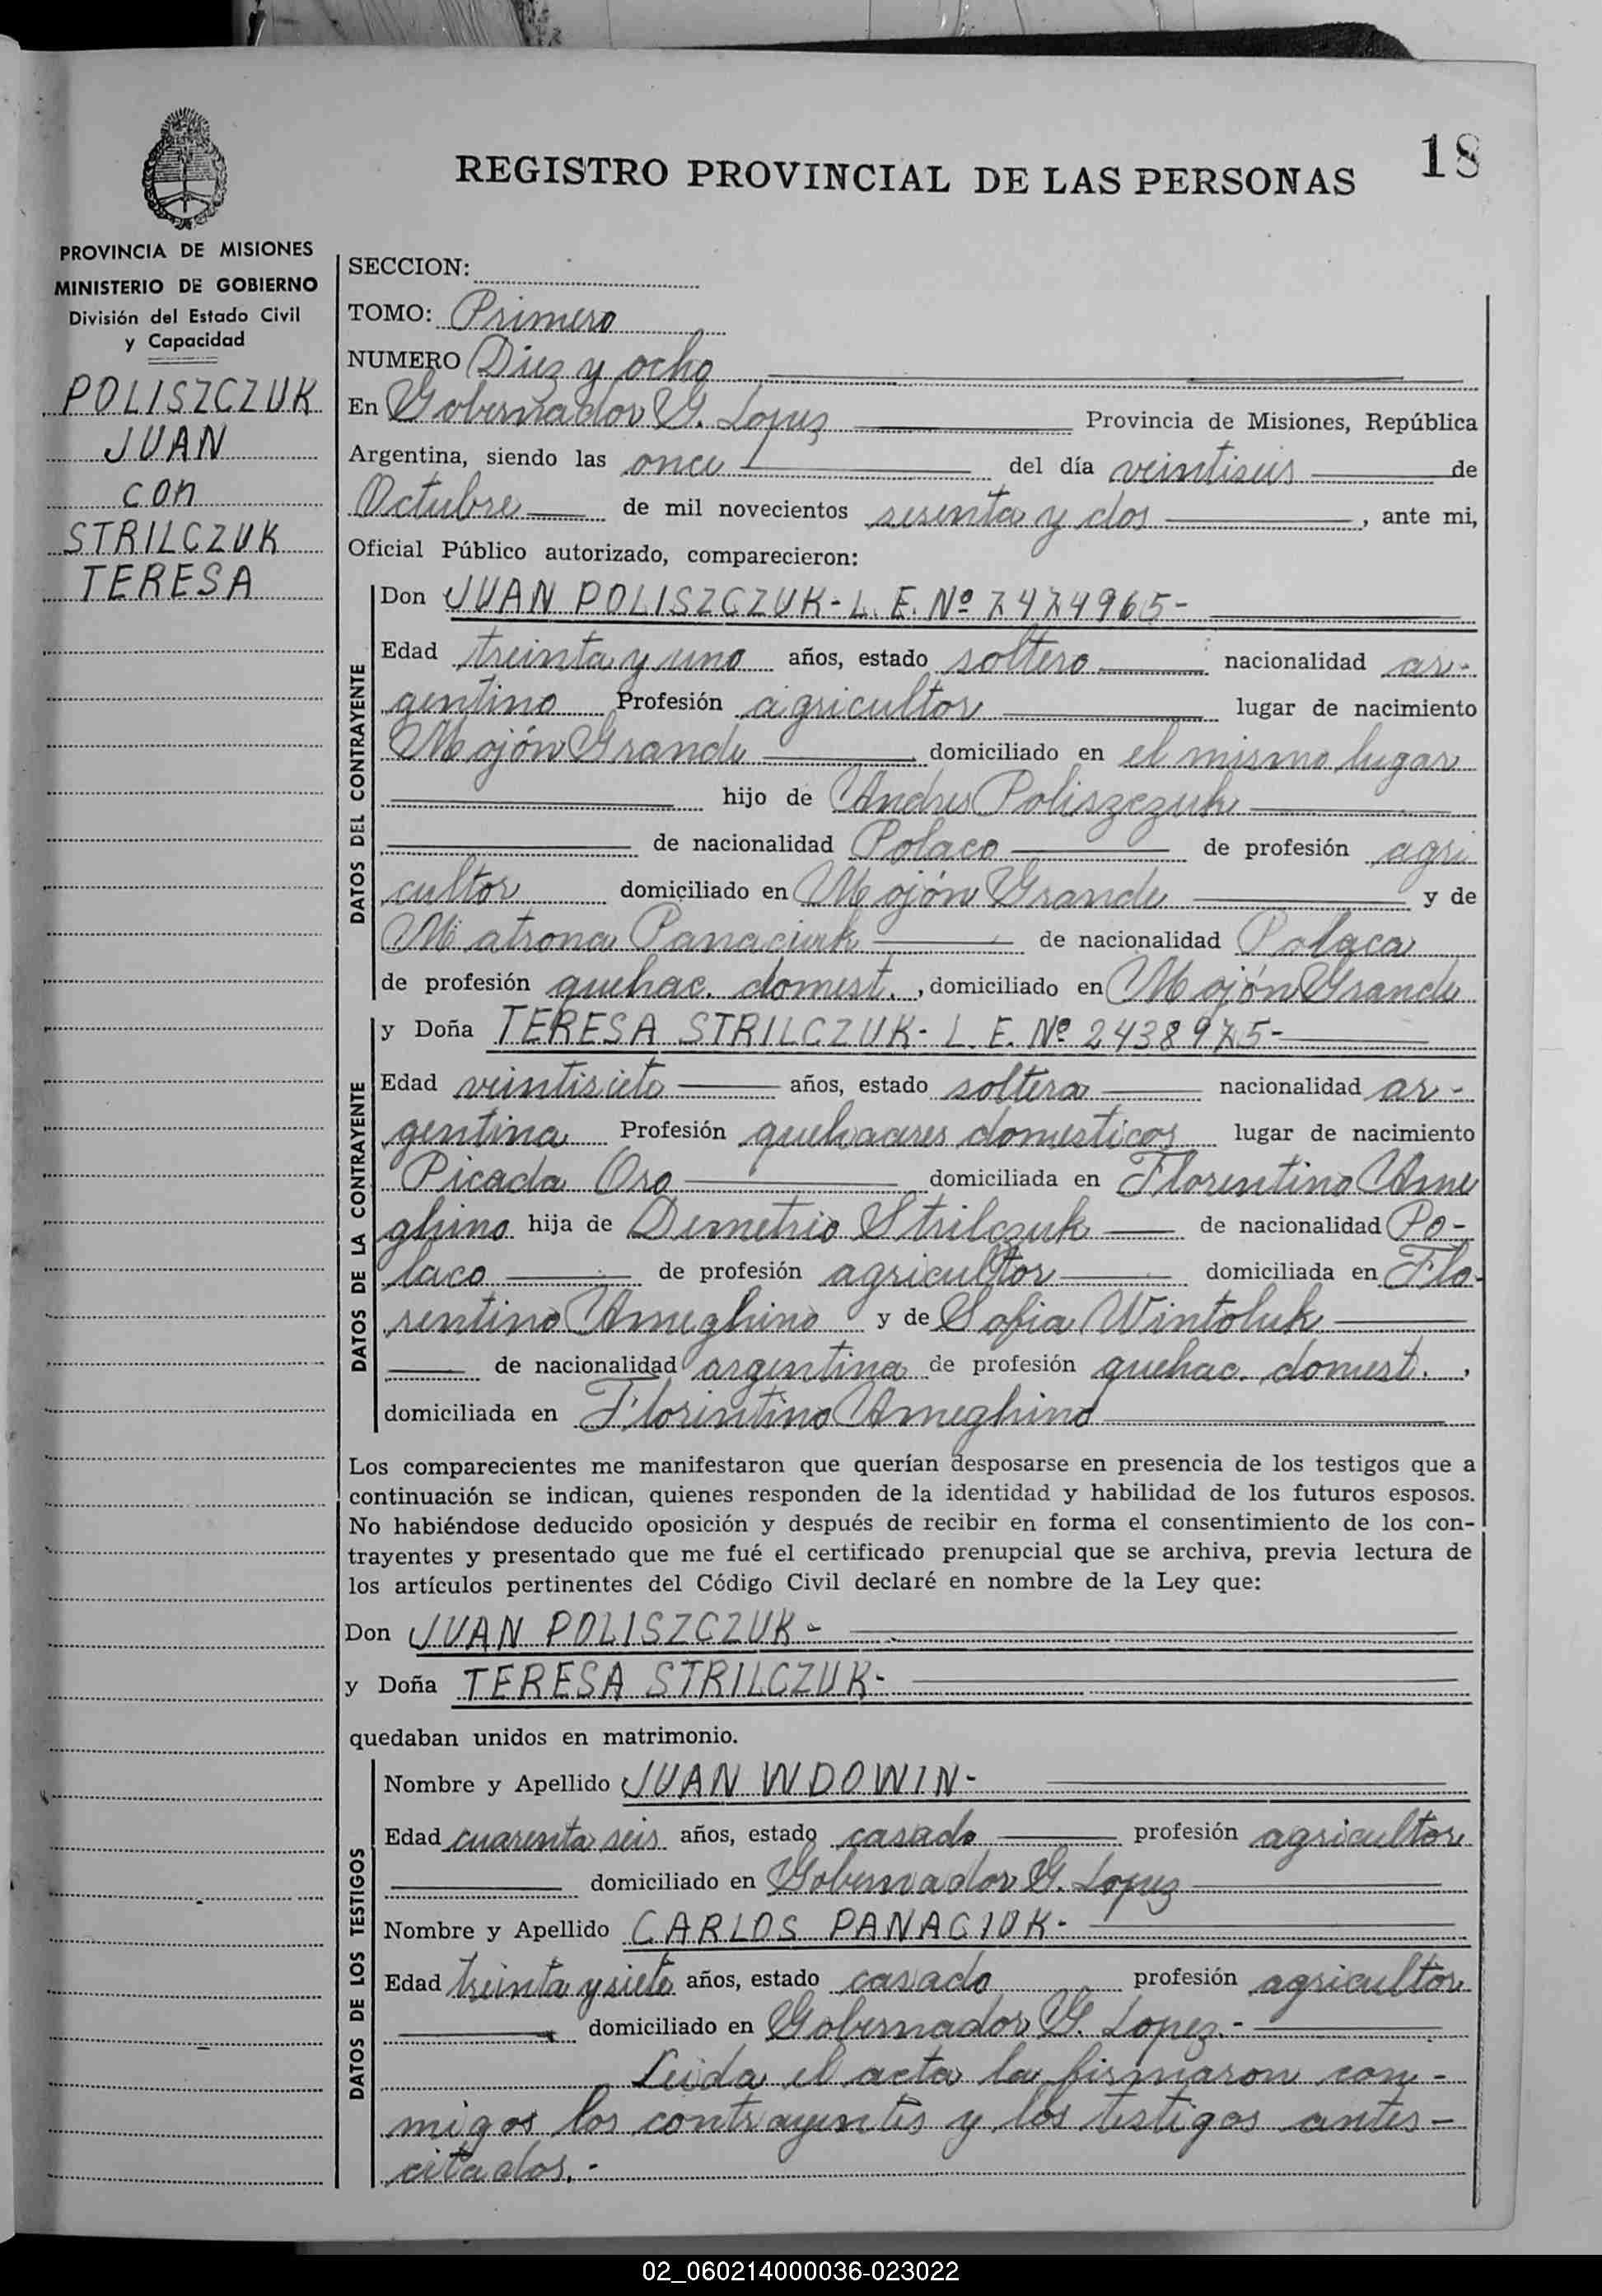 18
REGISTRO PROVINCIAL DE LAS PERSONAS
PROVINCIA DE MISIONES
MINISTERIO DE GOBIERNO
División del Estado Civil
y Capacidad
POLISZCZUK
JUAN
con
STRILCZUK
TERESA
SECCION:
TOMO: Primero
NUMERO Diez y ocho
En Gobernador G. Lopez Provincia de Misiones, República
Argentina, siendo las once del día veintiseis de
Octubre de mil novecientos sesenta y dos, ante mi,
Oficial Público autorizado, comparecieron:
DATOS DEL CONTRAYENTE
Don JUAN POLISZCZUK - L. E. Nº 7474965-
Edad treinta y uno años, estado soltero nacionalidad ar-
gentino Profesión agricultor lugar de nacimiento
Mojón Grande domiciliado en el mismo lugar
hijo de Andres Poliszczuk
de nacionalidad Polaco de profesión agri
cultor domiciliado en Mojón Grande y de
Matrona Panaciuk de nacionalidad Polaca
de profesión quehac. domest., domiciliado en Mojón Grande
DATOS DE LA CONTRAYENTE
y Doña TERESA STRILCZUK - L. E. Nº 2438975-
Edad veintisiete años, estado soltera nacionalidad ar-
gentina Profesión quehaceres domesticos lugar de nacimiento
Picada Oro domiciliada en Florentino Ame
ghino hija de Demetrio Strilczuk de nacionalidad Po-
laco de profesión agricultor domiciliada en Flo-
rentino Ameghino y de Sofia Wintoluk
de nacionalidad argentina de profesión quehac. domest.,
domiciliada en Florentino Ameghino
Los comparecientes me manifestaron que querían desposarse en presencia de los testigos que a
continuación se indican, quienes responden de la identidad y habilidad de los futuros esposos.
No habiéndose deducido oposición y después de recibir en forma el consentimiento de los con-
trayentes y presentado que me fué el certificado prenupcial que se archiva, previa lectura de
los artículos pertinentes del Código Civil declaré en nombre de la Ley que:
Don JUAN POLISZCZUK -
y Doña TERESA STRILCZUK -
quedaban unidos en matrimonio.
DATOS DE LOS TESTIGOS
Nombre y Apellido JUAN WDOWIN -
Edad cuarenta seis años, estado casado profesión agricultor
domiciliado en Gobernador G. Lopez
Nombre y Apellido CARLOS PANACIUK -
Edad treinta y siete años, estado casado profesión agricultor
domiciliado en Gobernador G. Lopez.-
Leida el acta la firmaron con-
migos los contrayentes y los testigos antes-
citados.-
02_060214000036-023022